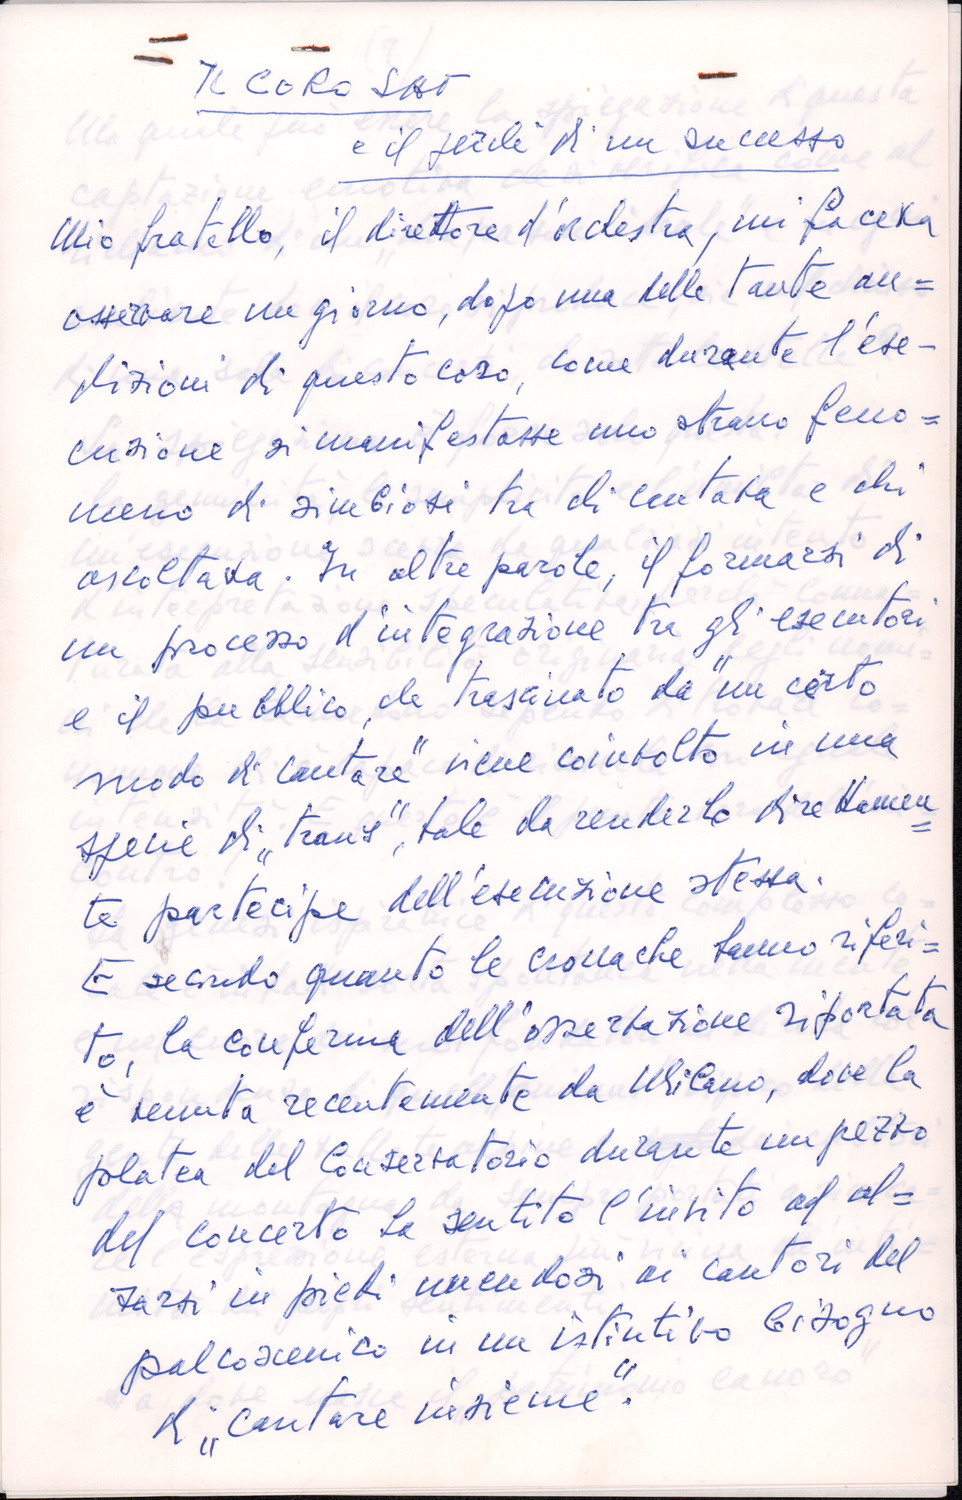 IL CORO SAT
e il perché di un successo
Mio fratello, il direttore d'orchestra, mi faceva
osservare un giorno, dopo una delle tante au=
dizioni di questo coro, come durante l'ese-
cuzione si manifestasse uno strano feno=
meno di simbiosi tra chi cantava e chi
ascoltava. In altre parole, il formarsi di
un processo d'integrazione tra gli esecutori
e il pubblico, che trascinato da "un certo
modo di cantare" viene coinvolto in una
specie di „trans", tale da renderlo direttamen
=
te partecipe dell'esecuzione stessa.
E secondo quanto le cronache hanno riferi=
to, la conferma dell'osservazione riportata
è venuta recentemente da Milano, dove la
platea del Conservatorio durante un pezzo
del concerto ha sentito l'invito ad al=
zarsi in piedi unendosi ai cantori del
palcoscenico in un istintivo bisogno
di „cantare insieme".